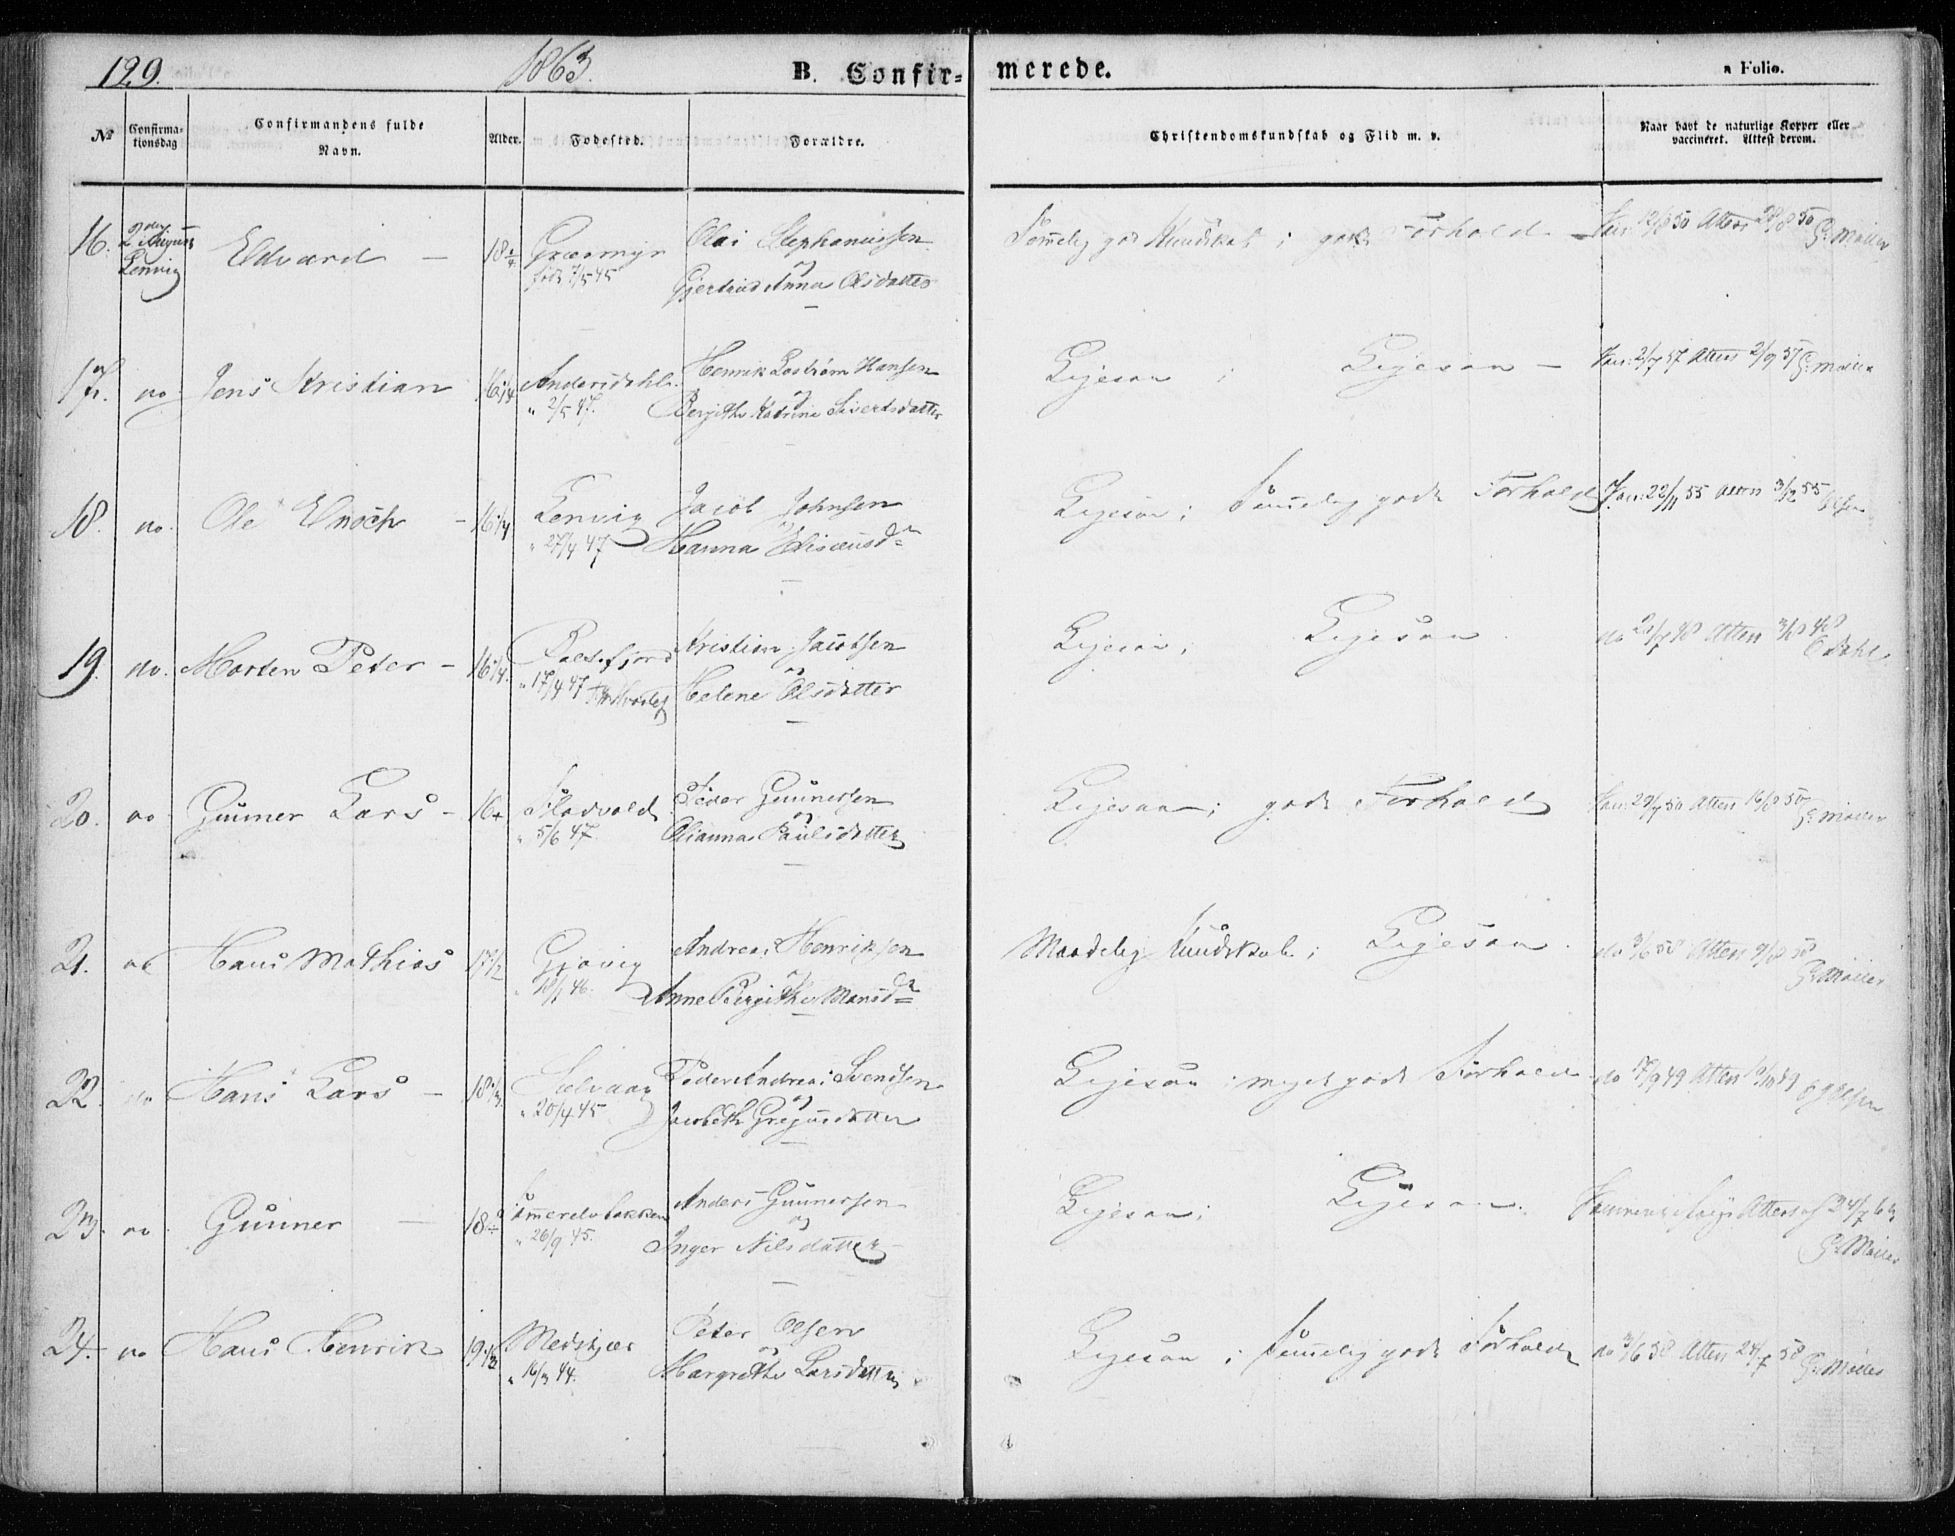 129.
1863.
B. Confir=
merede.
a Folio.
No
Confirma-
tionsdag
Confirmandens fulde
Navn.
Alder.
Fødested.
Forældre.
Christendomskundskab og Flid m. v.
Naar havt de naturlige Kopper eller
vaccineret. Attest derom.
16. 2 August Lenvig
Edvard —
18 1/4
Græsmyr
født 7/5 45
Olai Stephanussen
og
Gjertrud Anna Olsdatter
Temmelig god Kundskab; godt Forhold —
Vac: 12/8 50 Attest 28/8 50 G. Møller
17. do Jens Kristian 16 1/4
Andersdahl.
" 2/5 47.
Henrik Lostrøm Hansen
og
Bergithe Katrine Sivertsdatter
Ligesaa ; Ligesaa —
Vac: 2/7 57 Attest 2/9 57 G. Møller
18. do. Ole Enoch — 16 1/4
Lenvig
" 27/4 47
Jacob Johnsen
og
Hanna Eliseusd=
Ligesaa ; Temmelig godt Forhold
Vac: 22/11 55 Attest 3/12 55
19. do. Morten Peter — 16 1/4.
Balsfjord
" 17/4 47
Kristian Jacobsen
og
Helene Olsdatter
Ligesaa ; Ligesaa
do 20/7 48 Attest 3/8 48
C Dahl
20. do Gunner Lars — 16+
Fladvold
" 5/6 47.
Peder Gunnersen
og
Olianna Paulsdatter
Ligesaa ; godt Forhold
Vac: 29/7 50 Attest 16/8 50 G. Møller
21. do Hans Mathias 17 1/2
Gjøvig
" 18/1 46.
Andreas Henriksen
og
Anne Bergithe Monsd=
Maadelig Kundskab ; Ligesaa.
do 3/6 58 Attest 9/8 58
G. Møller
22. do Hans Lars — 18 1/3
Selvaag
" 20/4 45
Peder Andreas Svendsen
og
Jacobeth Gregusdatter
Ligesaa ; meget godt Forhold.
do 17/9 49 Attest 10/10 49
23. do. Gunner —
18-
" 26/9 45.
Anders Gunnersen
og
Inger Nilsdatter
Ligesaa ; Ligesaa.
Attest af 24/7 63
G. Møller
24. do Hans Henrik 19 1/3
Medskjær
" 16/3 44.
Peter Olsen
og
Margrethe Larsdatter
Ligesaa ; temmelig godt Forhold
do 3/6 58 Attest 24/7 58 G. Møller